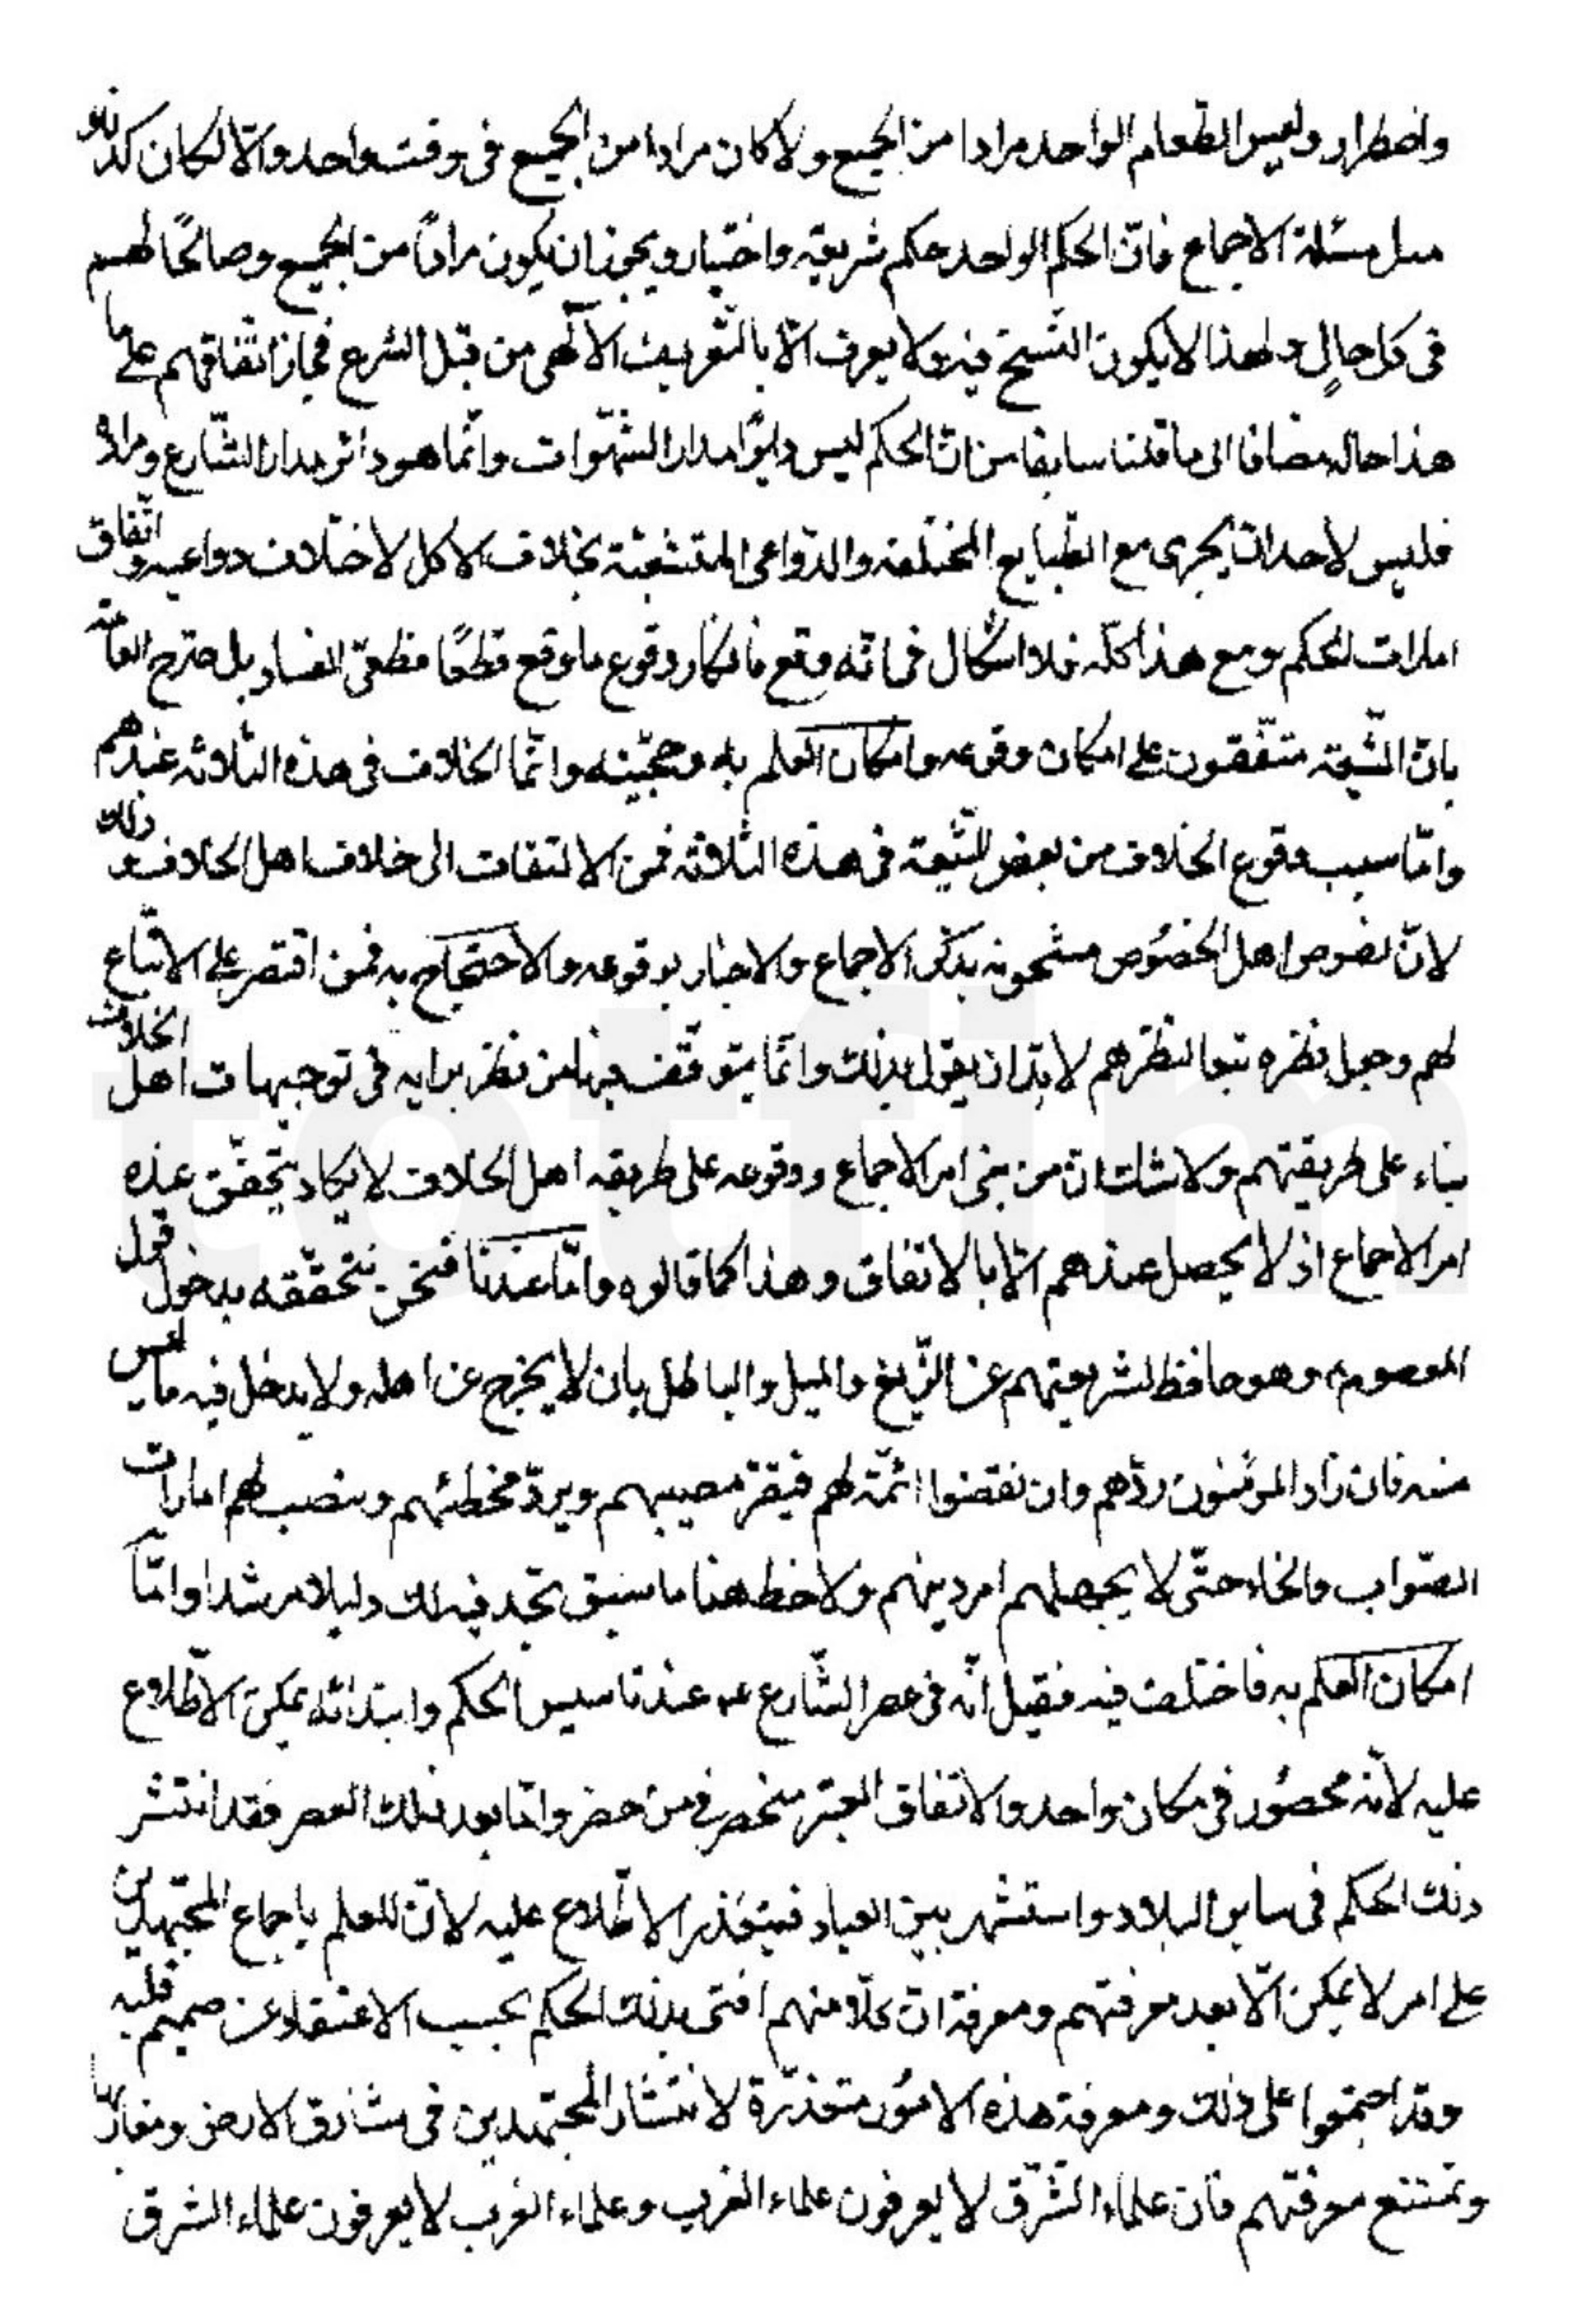 واضطرار وليس الطعام الواحد مرادا من الجميع ولا كان مرادا من الجميع فى وقت واحد والّا لكان كذلك
مسئلة الاجماع فانّ الحكم الواحد حكم شريعة واختيار ويجوز ان يكون مرادًا من الجميع وصالحًا لهم
فى كل حالٍ ولهذا لا يكون النّسخ فيه ولا يعرف الّا بالتّعريف الالٓهى من قبل الشرع فجاز اتّفاقهم على ما
هذا حاله مضافا الى ما قلنا سابقا من انّ الحكم ليس دايرًا مدار الشّهوات وانّما هو دائر مدار الشّارع ومراده
فليس لاحد ان يجرى مع الطّبايع المختلفه والدّواعى المتشعّبة بخلاف الاكل لاختلاف دواعيه واتّفاق
امارات الحكم ومع هذا كلّه فلا اشكال فى انّه وقع فانكار وقوع ما وقع قطعًا قطعىّ الفساد بل صرّح العامّه
بانّ الشّيعة متّفقون على امكان وقوعه وامكان العلم به وحجّيّته وانّما الخلاف فى هذه الثلاثه عندهم
وامّا سبب وقوع الخلاف من بعض الشّيعة فى هذه الثّلاثة فمن الالتفات الى خلاف اهل الخلاف وذلك
لانّ نصوص اهل الخصُوص مشحونه بذكر الاجماع والاخبار بوقوعه والاحتجاج به فمن اقتصر على الاتّباع
لهم وجعل نظره تبعا لنظرهم لا بدّ ان يقول بذلك وانّما يتوقّف فيها من نظر برايه فى توجيهات اهل الخلاف
بناء على طريقتهم ولا شك انّ من بنى امر الاجماع ووقوعه على طريقه اهل الخلاف لا يكاد يتحقّق عنده
امر الاجماع اذ لا يحصل عندهم الّا بالاتفاق وهذا كما قالوه وامّا عندنا فنحن نتحقّقه بدخول قول
المعصوم وهو حافظ لشريعتهم عن الزّيغ والميل والباطل بان لا يخرج عن اهله ولا يدخل فيه ما ليس
منه فان زاد المؤمنون ردّهم وان نقصوا اتمّه لهم فيقرّ مصيبهم ويردّ مخطئهم وينصب لهم امارات
الصّواب والخطاء حتّى لا يجهلهم امر دينهم ولاحظ هنا ما سبق تجد فيه لك دليلا مرشدا وامّا
امكان العلم به فاختلف فيه فقيل انّه فى عصر الشّارع ع عند تاسيس الحكم وابتدائه يمكن الاطّلاع
عليه لانّه محصُور فى مكان واحد والاتّفاق المعتبر منحصر فى من حضر وامّا بعد ذلك العصر فقد انتشر
ذلك الحكم فى ساير البلاد واستشهر بين العباد فيتعذر الاطّلاع عليه لانّ العلم باجماع المجتهدين
على امر لا يمكن الّا بعد معرفتهم ومعرفة انّ كلّا منهم افتى بذلك الحكم بحسب الاعتقاد عن صميم قلبه
وقد اجتمعوا على ذلك ومعرفة هذه الامُور متعذّرة لانتشار المجتهدين فى مشارق الارض ومغاربها
وتمتنع معرفتهم فان علماء الشّرق لا يعرفون علماء الغرب وعلماء الغرب لا يعرفون علماء الشرق